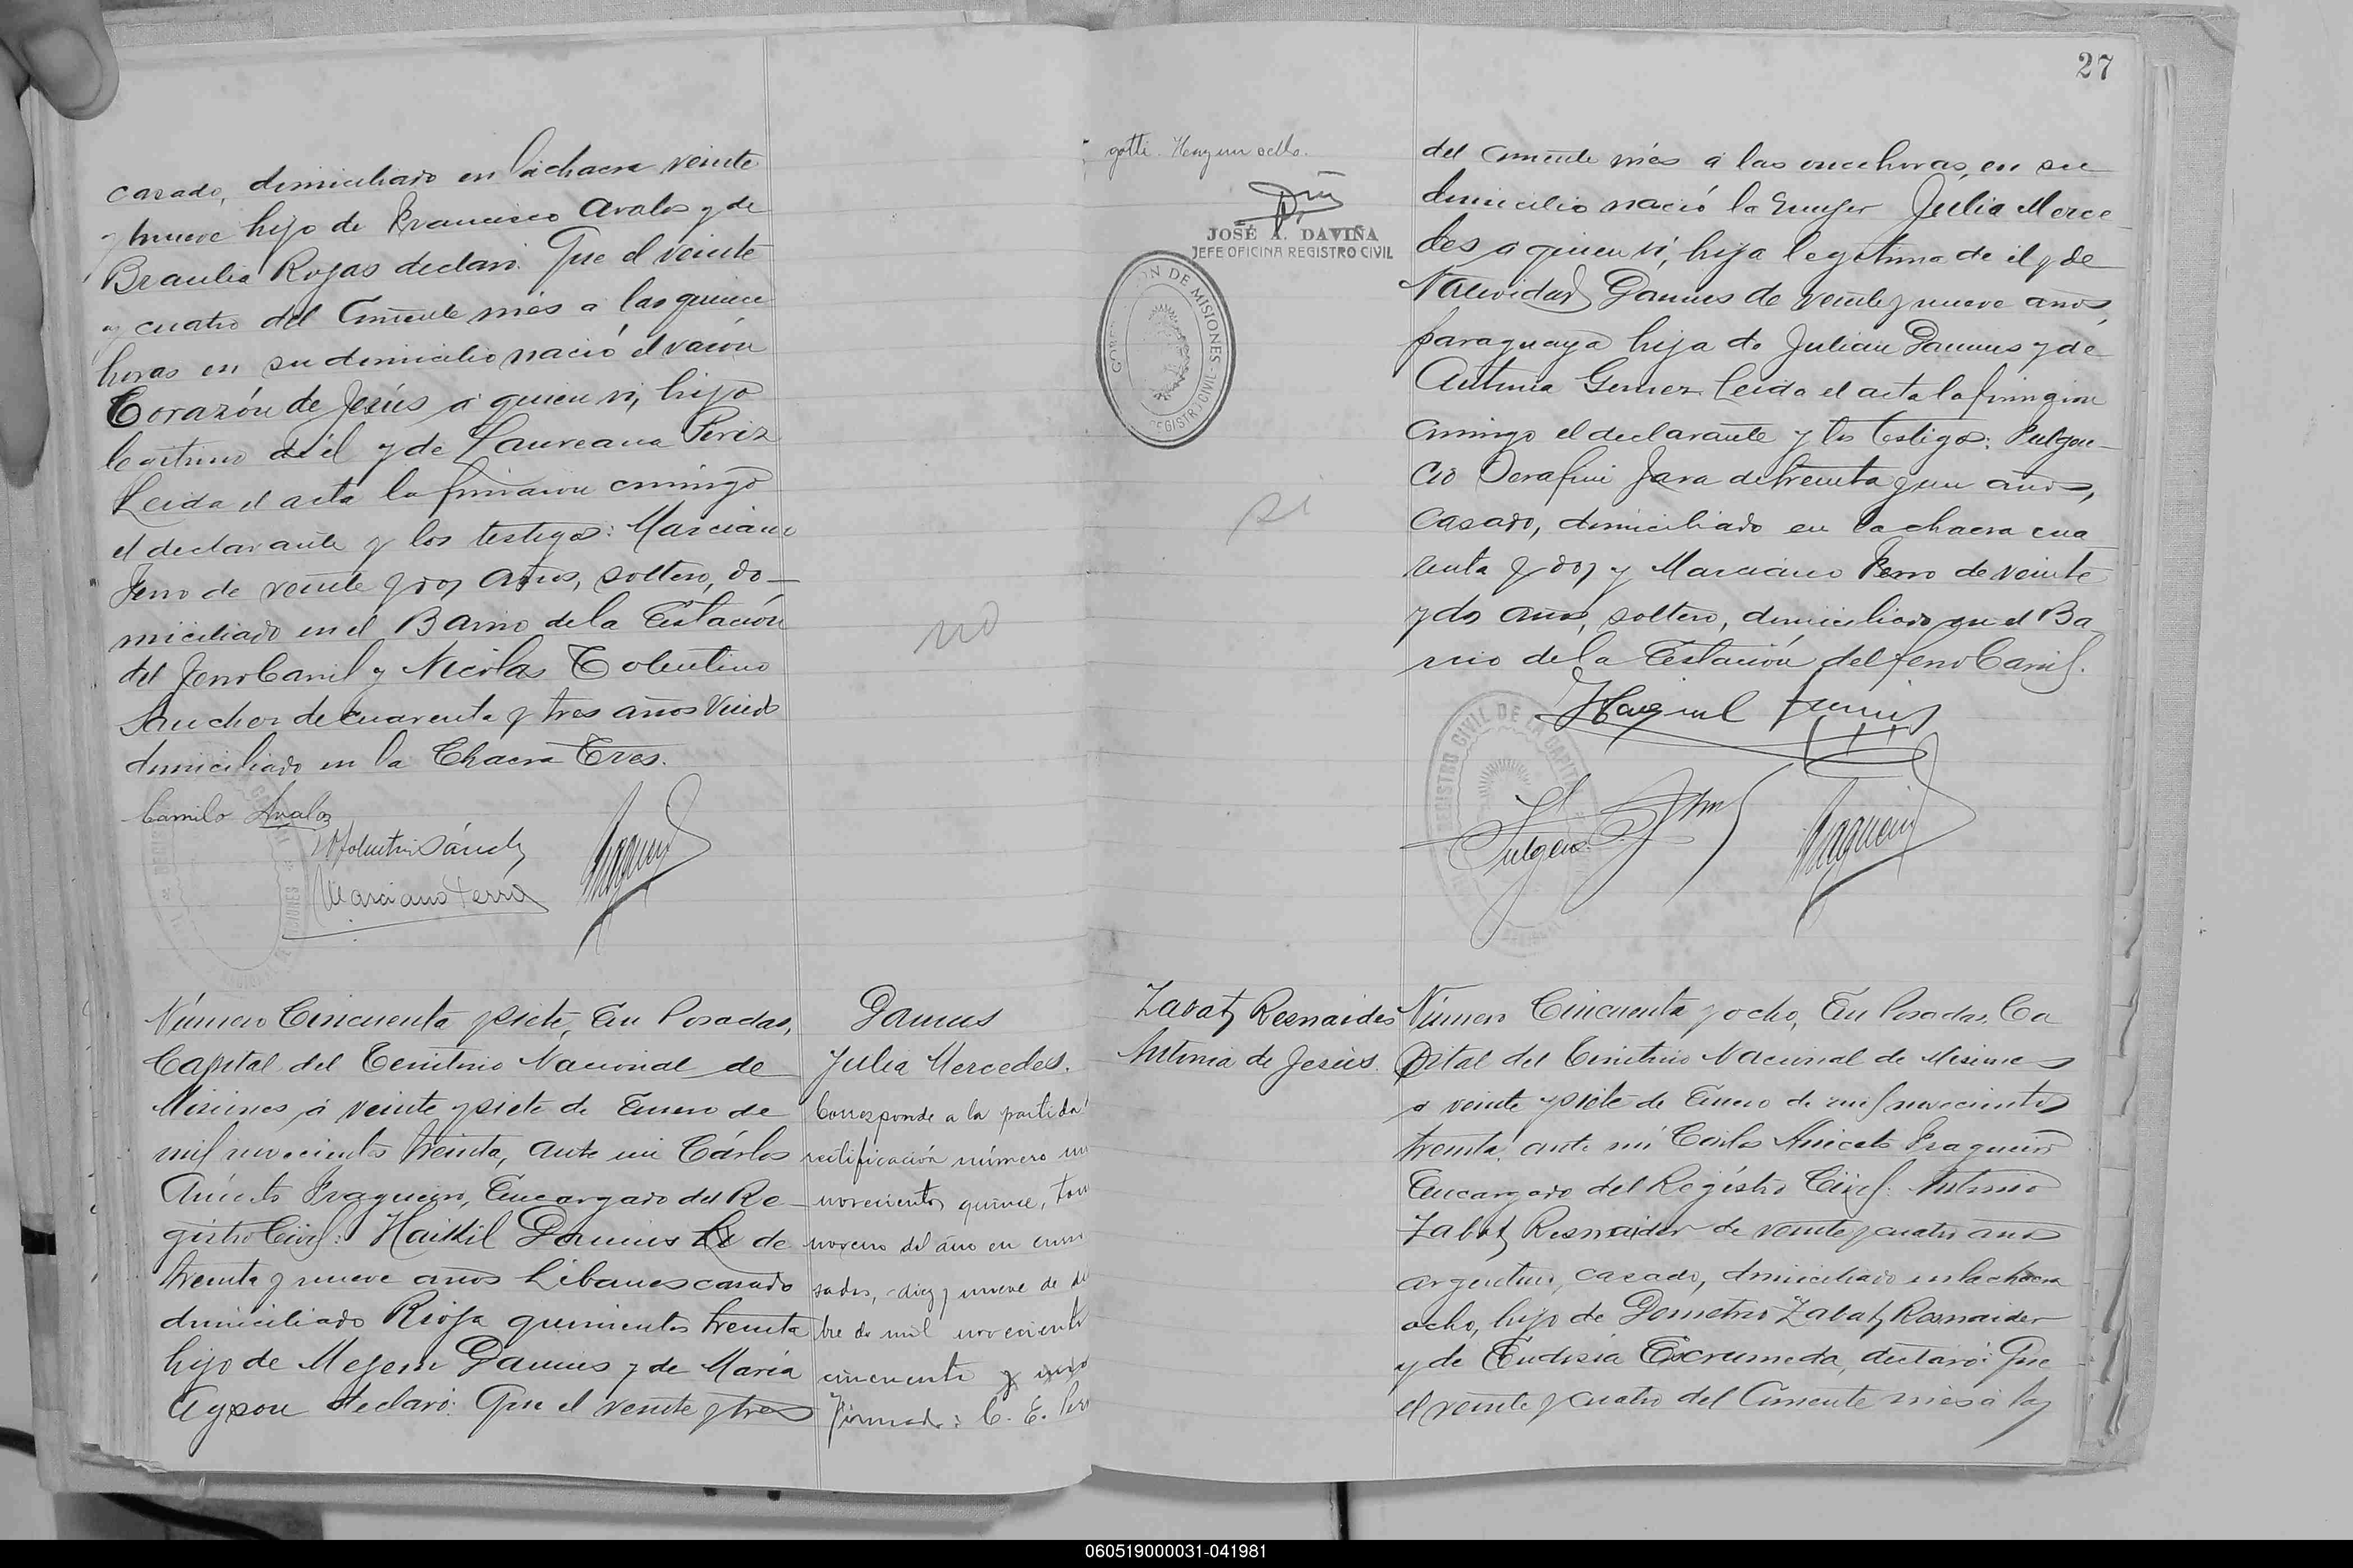 casado, domiciliado en la chacra veinte
y nueve hijo de Francisco Avalos y de
Braulia Rojas declaró: Que el veinte
y cuatro del corriente mes a las quince
horas en su domicilio nació el varón
Corazón de Jesús a quien ví, hijo
legítimo de él y de Laureana Perez
Leida el acta la firmaron conmigo
el declarante y los testigos: Marciano
Ferro de veinte y dos años, soltero, do-
miciliado en el Barrio de la Estación
del FerroCarril y Nicolas Tolentino
Sanchez de cuarenta y tres años viudo
domiciliado en la Chacra Tres.
Camilo Avalos
NTolentino Sánchez
Marciano Ferro
Número Cincuenta y siete, En Posadas,
Capital del Territorio Nacional de
Misiones, á veinte y siete de Enero de
mil novecientos treinta, ante mi Cárlos
Aniceto Fragueiro, Encargado del Re-
gistro Civil: Haikil Damus de
treinta y nueve años Libanes casado
domiciliado Rioja quinientos treinta
hijo de Damus y de María
declaró: Que el veinte y tres
Damus
Julia Mercedes.
Corresponde a la partida
rectificación número un
novecientos quince, tom
noveno del año en curso
sadas, diez y nueve de
bre de mil novecientos
cincuenta y uno
Firmado: C. E.
no
27
gotti. Hay un sello.
JOSÉ A. DAVIÑA
JEFE OFICINA REGISTRO CIVIL
DE MISIONES
REGISTRO CIVIL
si
del corriente mes a las once horas, en su
domicilio nació la mujer Julia Merce
des a quien ví, hija legítima de él y de
Natividad Damus de veinte y nueve años,
paraguaya hija de Julian Damus y de
Antonia Gomez. Leida el acta la firmaron
conmigo el declarante y los testigos: Fulgen-
cio Serafin Jara de treinta y un años,
casado, domiciliado en la chacra cua
renta y dos y Marciano Ferro de veinte
y dos años, soltero, domiciliado en el Ba
rrio de la Estación del ferroCarril.
REGISTRO CIVIL DE LA CAPITAL
Zabatz Resnaider
Antonia de Jesús.
Número Cincuenta y ocho, En Posadas, Ca
pital del Territorio Nacional de Misiones
a veinte y siete de Enero de mil novecientos
treinta, ante mí Carlos Aniceto Fragueiro
Encargado del Registro Civil: Antonio
Zabatz Resnaider de veinte y cuatro años
argentino, casado, domiciliado en la chacra
ocho, hijo de Demetrio Zabatz Resnaider
y de declaró: Que
el veinte y cuatro del corriente mes a las
060519000031-041981